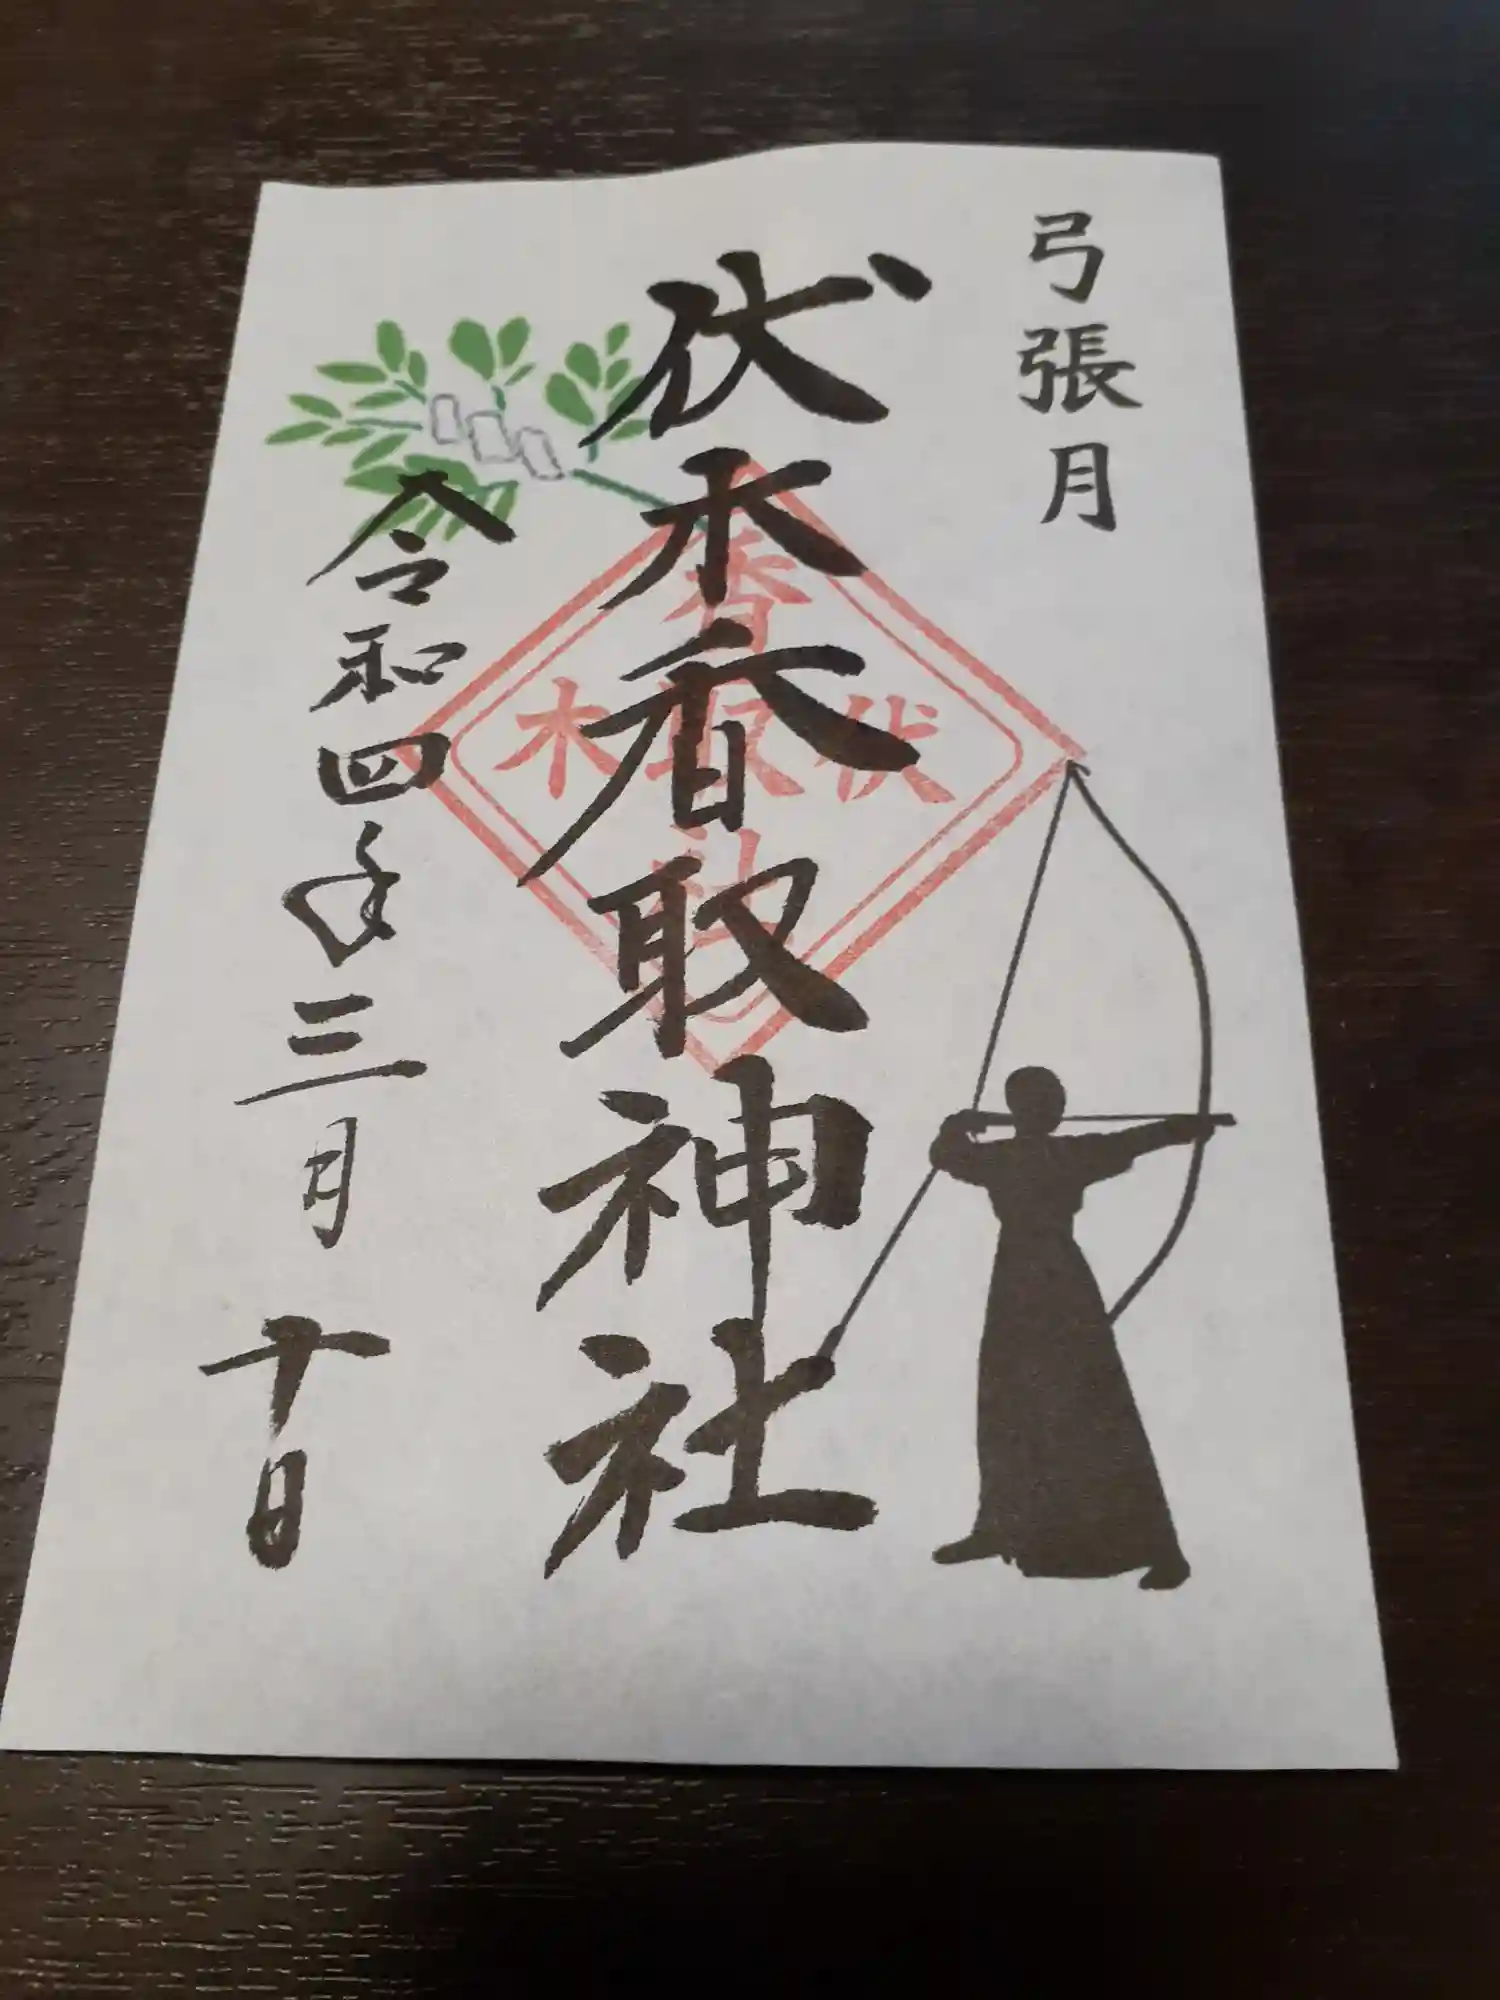 弓張月
伏木香取神社
香
伏取木
社
令和四年三月十日